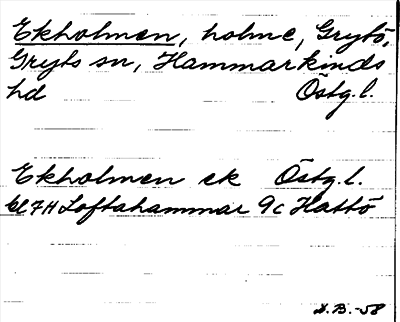 Ekholmen, holme, Grytö,
Gryts sn, Hammarkinds
hd Östg.l.
Ekholmen ek Östg.l.
bl 7H Loftahammar 9c Hattö
S.B.-58